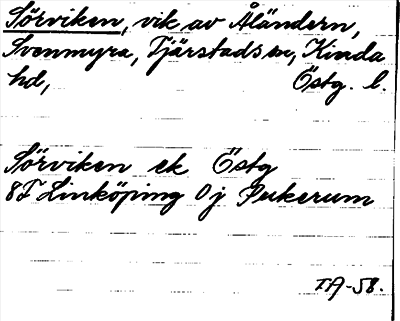 Sörviken, vik av Åländern,
Svenmyra, Tjärstads sn, Kinda
hd, Östg. l.
Sörviken ek Östg
8F Linköping 0j Pukerum
TA-58.